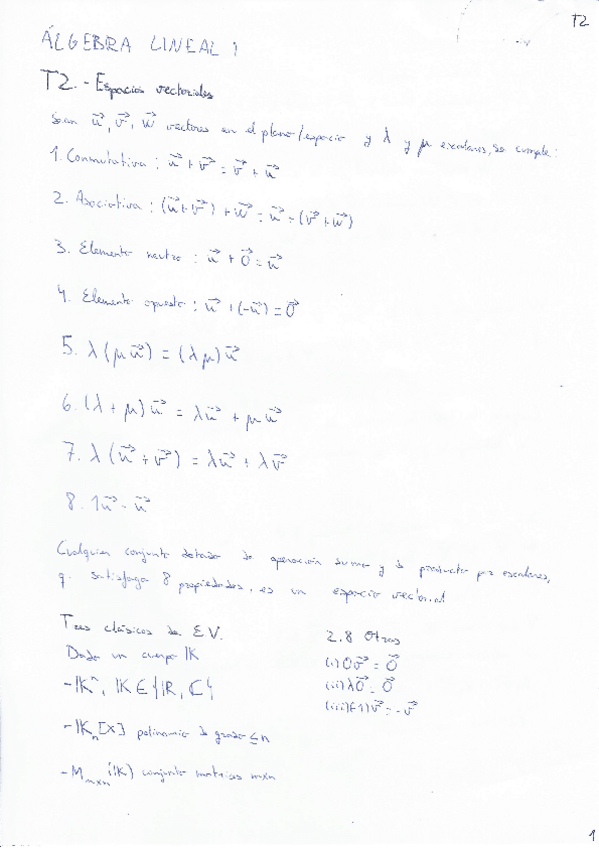 T2
ÁLGEBRA LINEAL 1
T2.- Espacios vectoriales
Sean u⃗, v⃗, w⃗ vectores en el plano/espacio y λ y μ escalares, se cumple:
1. Conmutativa: u⃗ + v⃗ = v⃗ + u⃗
2. Asociativa: (u⃗ + v⃗) + w⃗ = u⃗ + (v⃗ + w⃗)
3. Elemento neutro: u⃗ + 0⃗ = u⃗
4. Elemento opuesto: u⃗ + (-u⃗) = 0⃗
5. λ(μu⃗) = (λμ)u⃗
6. (λ + μ)u⃗ = λu⃗ + μu⃗
7. λ(u⃗ + v⃗) = λu⃗ + λv⃗
8. 1u⃗ = u⃗
Cualquier conjunto dotado de operación suma y de producto por escalares,
q. satisfaga 8 propiedades, es un espacio vectorial
Tres clásicos de E.V.
Dado un cuerpo 𝕂
- 𝕂ⁿ, 𝕂 ∈ {ℝ, ℂ}
- 𝕂ₙ[X] polinomio de grado ≤ n
- Mₘₓₙ(𝕂) conjunto matrices mxn
2.8 Otros
(i) 0v⃗ = 0⃗
(ii) λ0⃗ = 0⃗
(iii) (-1)v⃗ = -v⃗
1